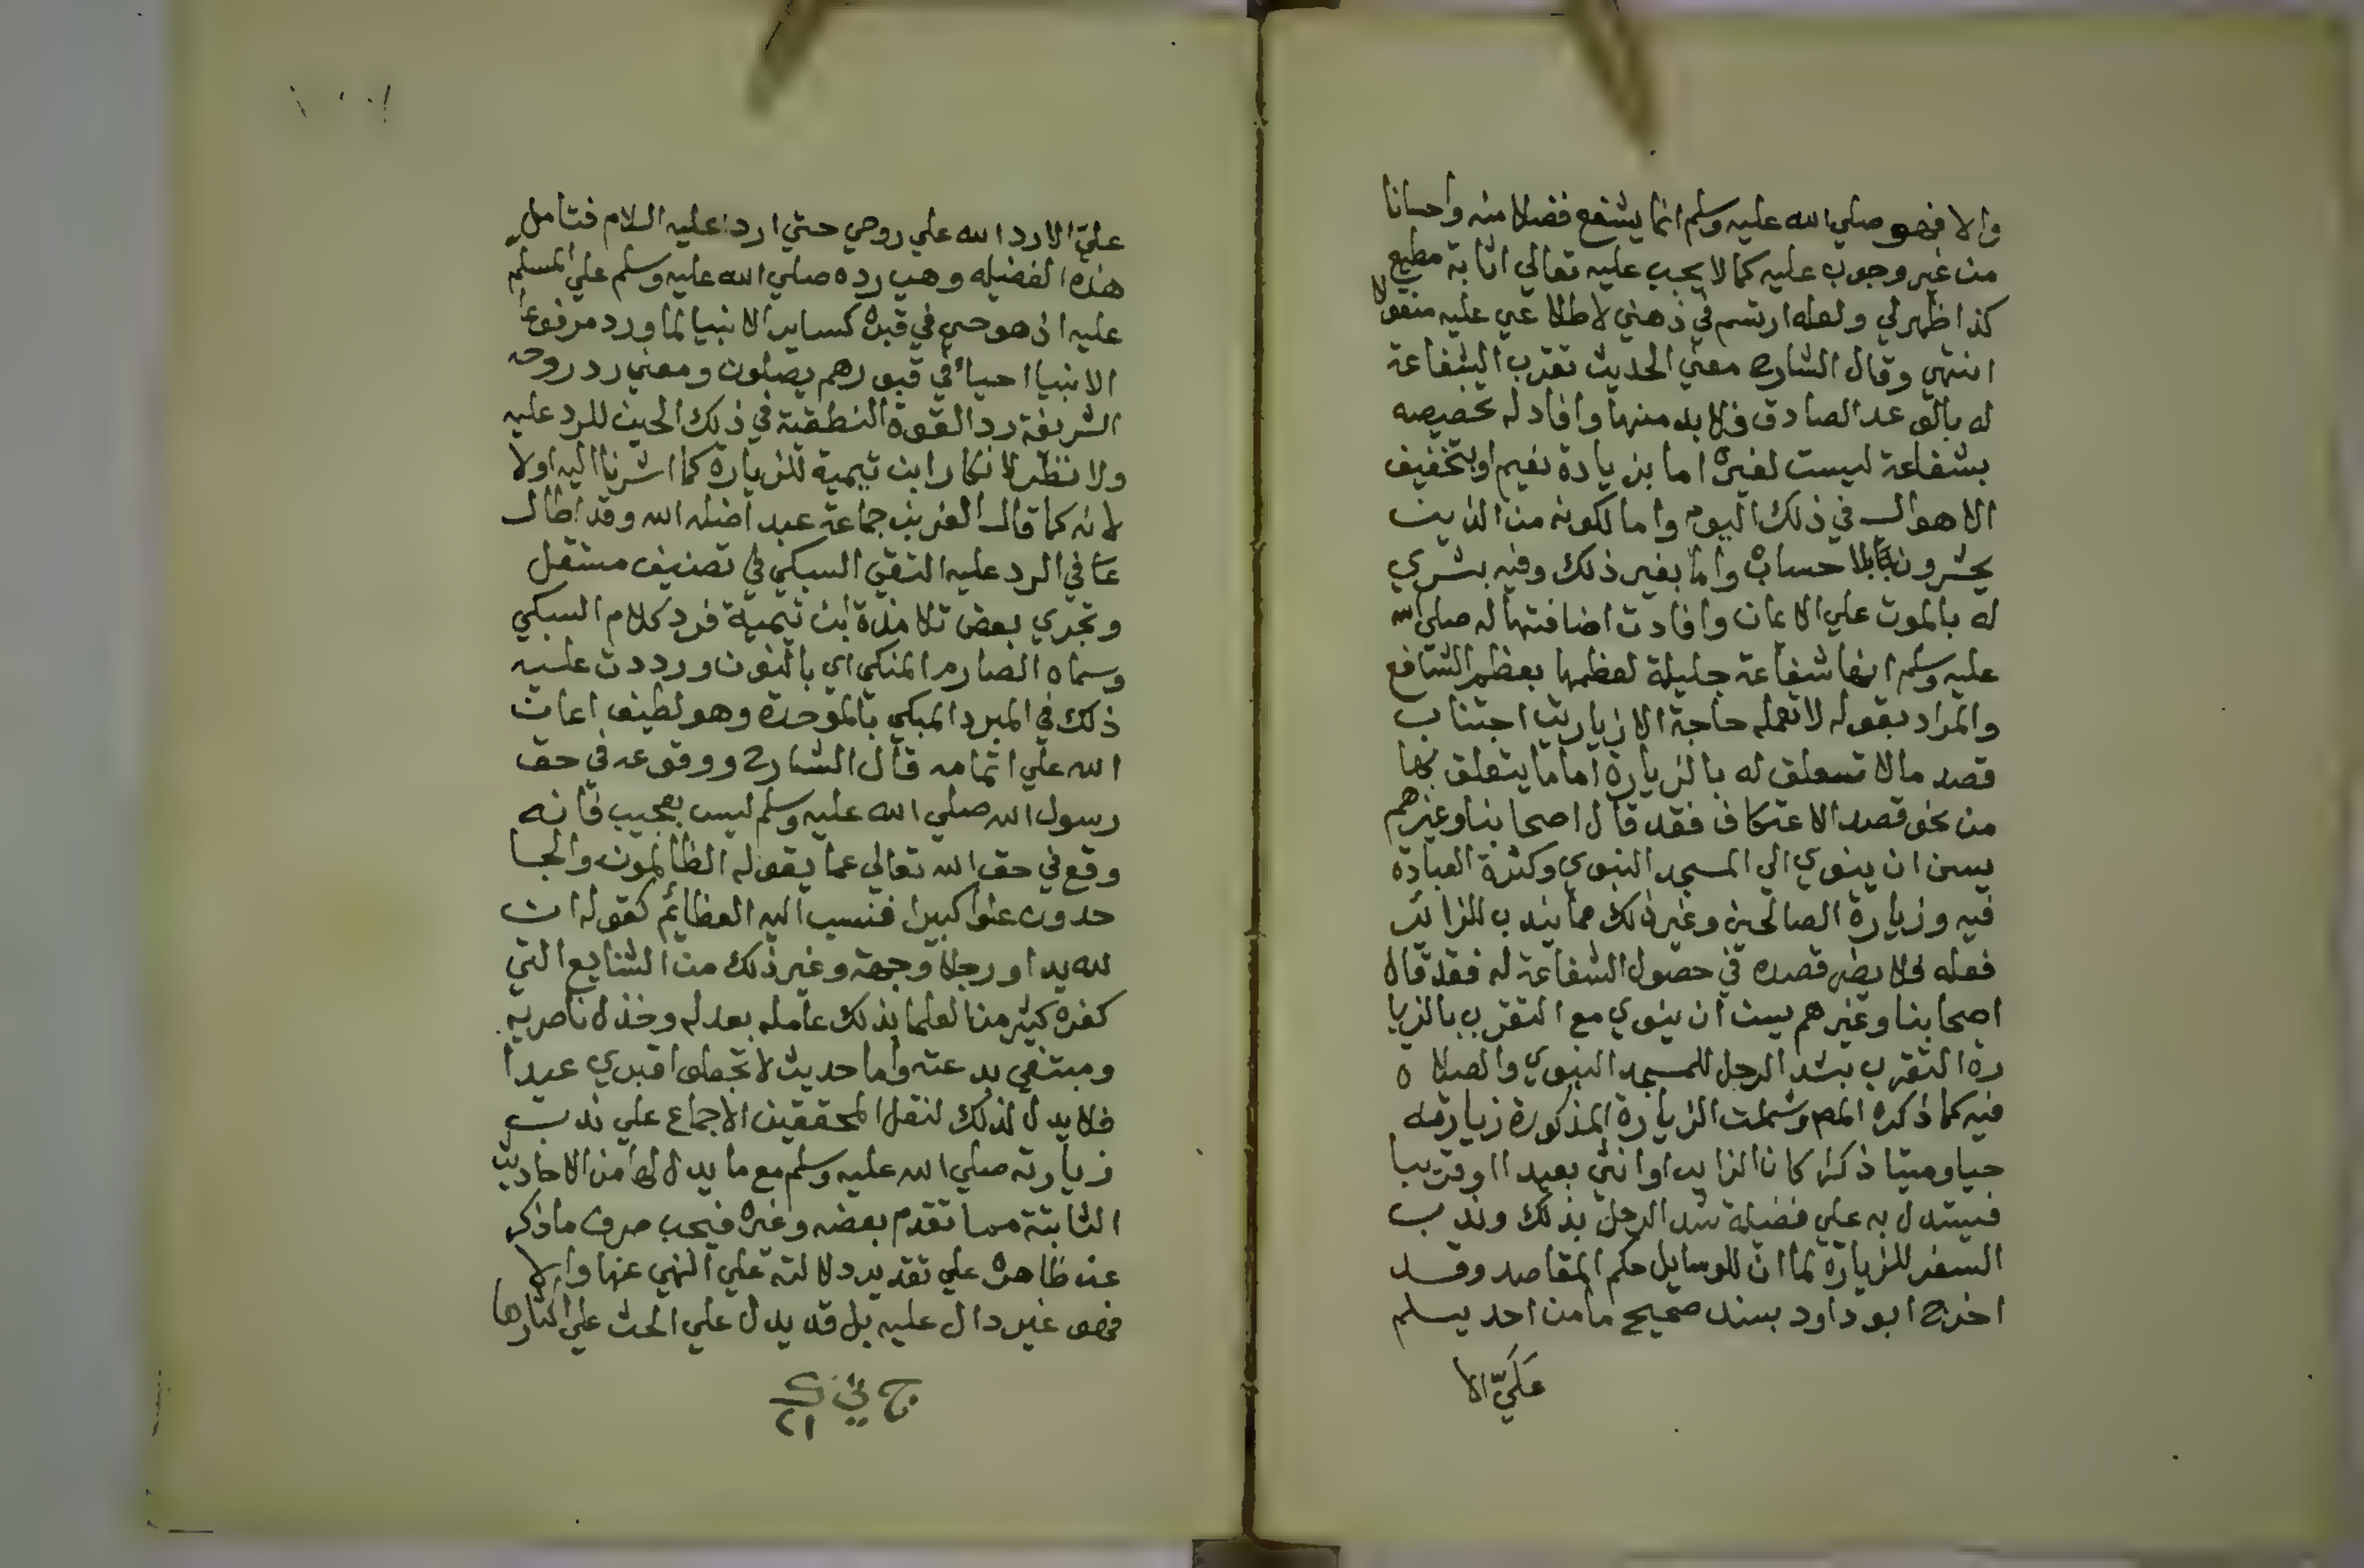 والا فهو صلي الله عليه وسلم انما يشفع فضلا منه واحسانا
من غير وجوب عليه كما لا يجب عليه تعالي اثابة مطيع
كذا ظهر لي ولعله ارتسم في ذهني لاطلاعي عليه منقولا
انتهي وقال الشارح معني الحديث تقرب الشفاعة
له بالوعد الصادق فلا بد منها وافاد له تخصيصه
بشفاعة ليست لغيره اما بزيادة نعيم او بتخفيف
الاهوال في ذلك اليوم واما لكونه من الذين
يحشرون بلا حساب واما بغير ذلك وفيه بشري
له بالموت علي الايمان وافادت اضافتها له صلي الله
عليه وسلم انها شفاعة جليلة لعظمها بعظم الشافع
والمراد بقوله لا تعمله حاجة الا زيارتي اجتناب
قصد ما لا تعلق له بالزيارة اما ما يتعلق بها
من نحو قصد الاعتكاف فقد قال اصحابنا وغيرهم
يسن ان ينوي الي المسجد النبوي وكثرة العبادة
فيه وزيارة الصالحين وغير ذلك مما يندب للزائر
فعله فلا يضر قصده في حصول الشفاعة له فقد قال
اصحابنا وغيرهم يسن ان ينوي مع التقرب بالزيا
رة التقرب بشد الرحل للمسجد النبوي والصلا ة
فيه كما ذكره المص وشملت الزيارة المذكورة زيارته
حيا وميتا ذكرا كان الزاير او انثي بعيدا او قريبا
فيستدل به علي فضيلة شد الرحل بذلك وندب
السفر للزيارة لما ان للوسايل حكم المقاصد وقد
اخرج ابو داود بسند صحيح ما من احد يسلم
عَلَيّ الا
عليّ الا رد الله علي روحي حتي ارد عليه السلام فتامل
هذه الفضيله وهي رده صلي الله عليه وسلم علي المسلم
عليه اذ هو حي في قبره كساير الانبيا لما ورد مرفوعا
الانبيا احياء في قبورهم يصلون ومعني رد روحه
الشريفة رد القوة النطقية في ذلك الحين للرد عليه
ولا نظر لانكار ابن تيمية للزيارة كما اشرنا اليه اولا
لانه كما قال العز بن جماعة عبد اضله الله وقد اطال
في الرد عليه التقي السبكي في تصنيف مستقل
وتجري بعض تلامذة ابن تيمية فرد كلام السبكي
وسماه الصارم المنكي اي بالنون ورددت عليه
ذلك في المبرد المبكي بالموحدة وهو لطيف اعان
الله علي اتمامه قال الشارح ووقوعه في حق
رسول الله صلي الله عليه وسلم ليس بعجيب فانه
وقع في حق الله تعالي عما يقوله الظالمون والجا
حدون علوا كبيرا فنسب اليه العظائم كقوله ان
لله يدا ورجلا وجهة وغير ذلك من الشنايع التي
كفره كثير من العلما بذلك عامله بعدله وخذل ناصريه
ومبتغي بدعته واما حديث لا تجعلوا قبري عيدا
فلا يدل لذلك لنقل المحققين الاجماع علي ندب
زيارته صلي الله عليه وسلم مع ما يدل لها من الاحاديث
الثابتة مما تقدم بعضه وغيره فيجب صرف ما ذكر
عن ظاهره علي تقدير دلالته علي النهي عنها والا
فهو غير دال عليه بل قد يدل علي الحث علي اكثارها